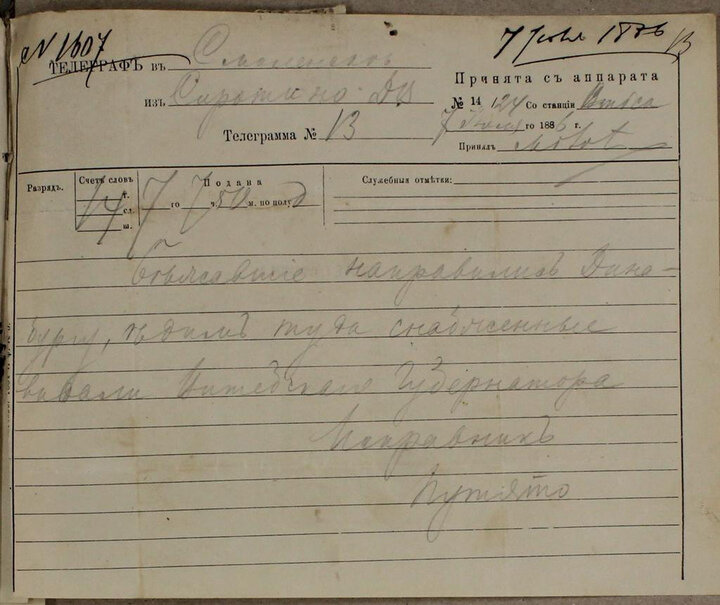 № 1607
7 Июля 1886
13
ТЕЛЕГРАФЪ въ Смоленскъ
изъ Сиротино Дв
Телеграмма № 13
Принята съ аппарата
№ 14 124 Со станціи
7 Июля го 1886 г.
Принялъ
Разрядъ.
Счетъ словъ
14
г.
сл.
ш.
Подана
7 го 7 ч. 50 м. по полу д
Служебныя отмѣтки:
Бѣжавшіе направились Дина-
бургу, ѣдимъ туда снабженные
Витебскаго Губернатора
Исправникъ
Путято